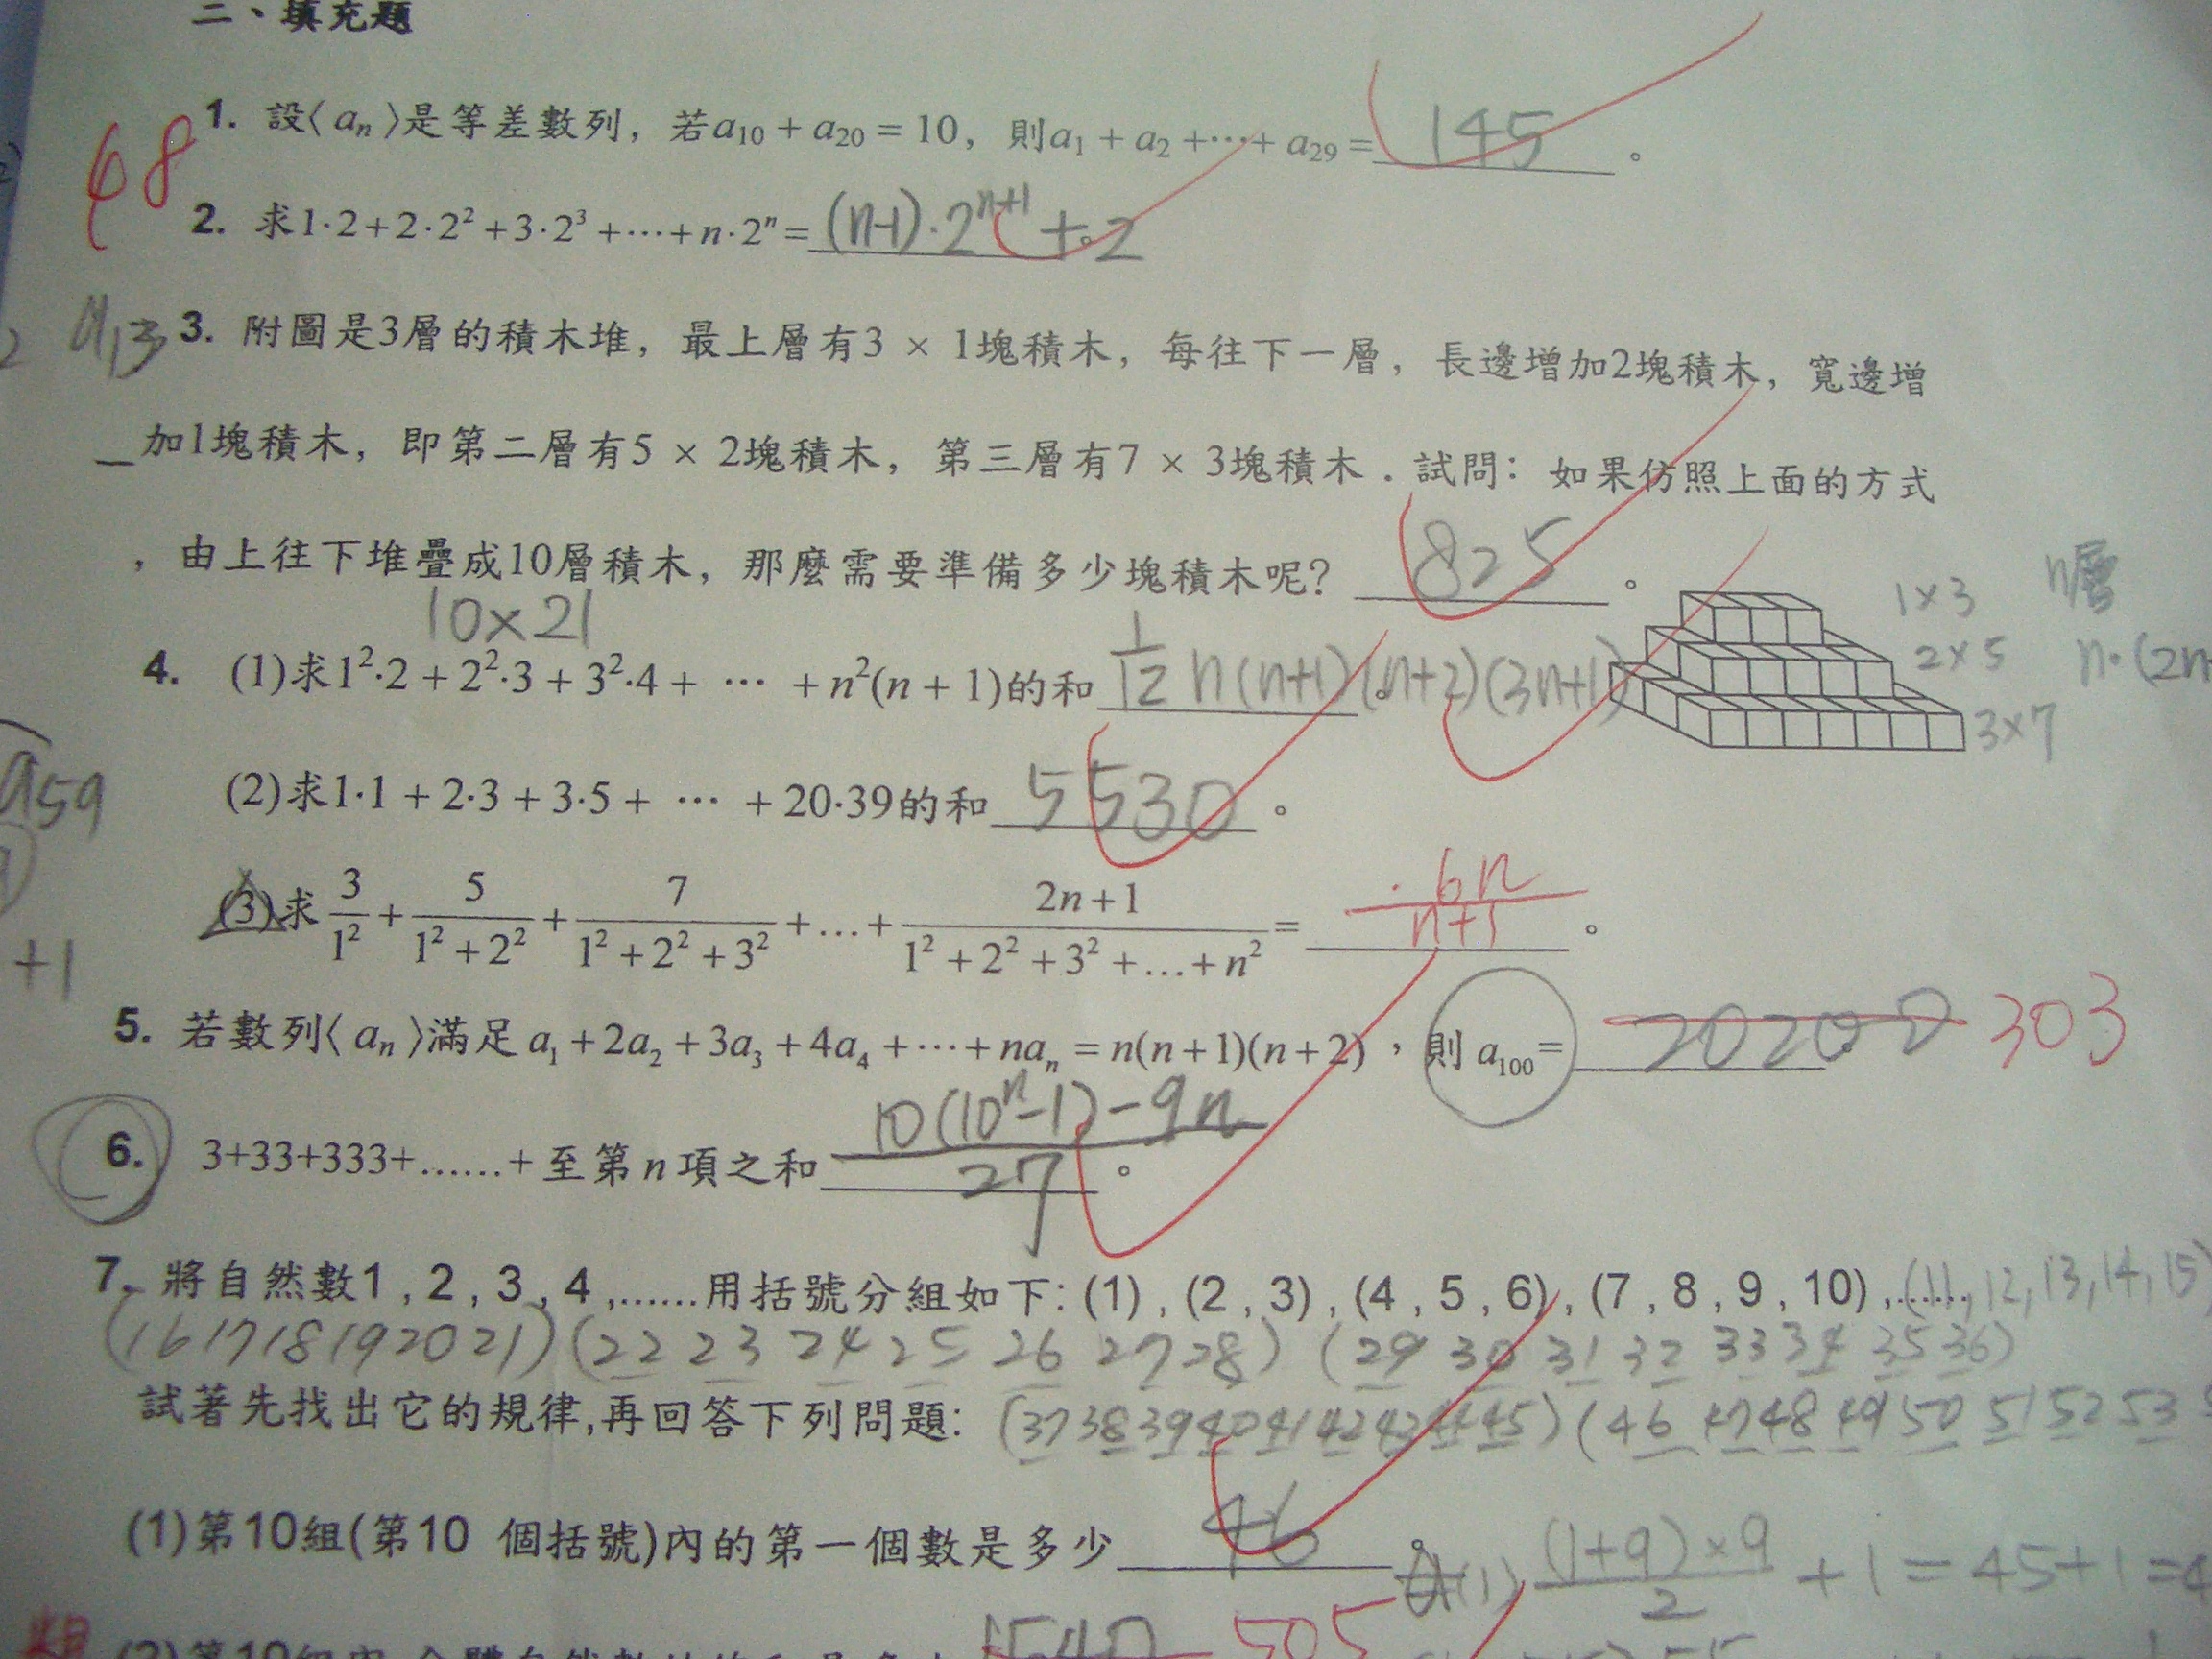 二、填充題
1. 設⟨aₙ⟩是等差數列，若a₁₀ + a₂₀ = 10，則a₁ + a₂ +⋯+ a₂₉ = 145 。
68
2. 求1·2+2·2²+3·2³+⋯+n·2ⁿ= (n-1)·2ⁿ⁺¹+2 。
3. 附圖是3層的積木堆，最上層有3 × 1塊積木，每往下一層，長邊增加2塊積木，寬邊增
加1塊積木，即第二層有5 × 2塊積木，第三層有7 × 3塊積木．試問：如果仿照上面的方式
，由上往下堆疊成10層積木，那麼需要準備多少塊積木呢？ 825 。
10×21
1×3 n層
2×5 n·(2n
3×7
4. (1)求1²·2 + 2²·3 + 3²·4 + ⋯ + n²(n + 1)的和 1/12 n(n+1)(n+2)(3n+1) 。
(2)求1·1 + 2·3 + 3·5 + ⋯ + 20·39的和 5530 。
a₅₉
(3)求 3/1² + 5/(1²+2²) + 7/(1²+2²+3²) +…+ (2n+1)/(1²+2²+3²+…+n²) = 6n/(n+1) 。
+1
5. 若數列⟨aₙ⟩滿足 a₁+2a₂+3a₃+4a₄+⋯+naₙ = n(n+1)(n+2)，則 a₁₀₀= 303
6. 3+33+333+……+至第n項之和 (10(10ⁿ-1)-9n)/27 。
7. 將自然數1 , 2 , 3 , 4 ,……用括號分組如下: (1) , (2 , 3) , (4 , 5 , 6) , (7 , 8 , 9 , 10) ,…… (11, 12, 13, 14, 15)
(16 17 18 19 20 21) (22 23 24 25 26 27 28) (29 30 31 32 33 34 35 36)
試著先找出它的規律,再回答下列問題: (37 38 39 40 41 42 43 44 45) (46 47 48 49 50 51 52 53
(1)第10組(第10 個括號)內的第一個數是多少 46 。
(1) (1+9)×9/2 + 1 = 45+1 = 4
505